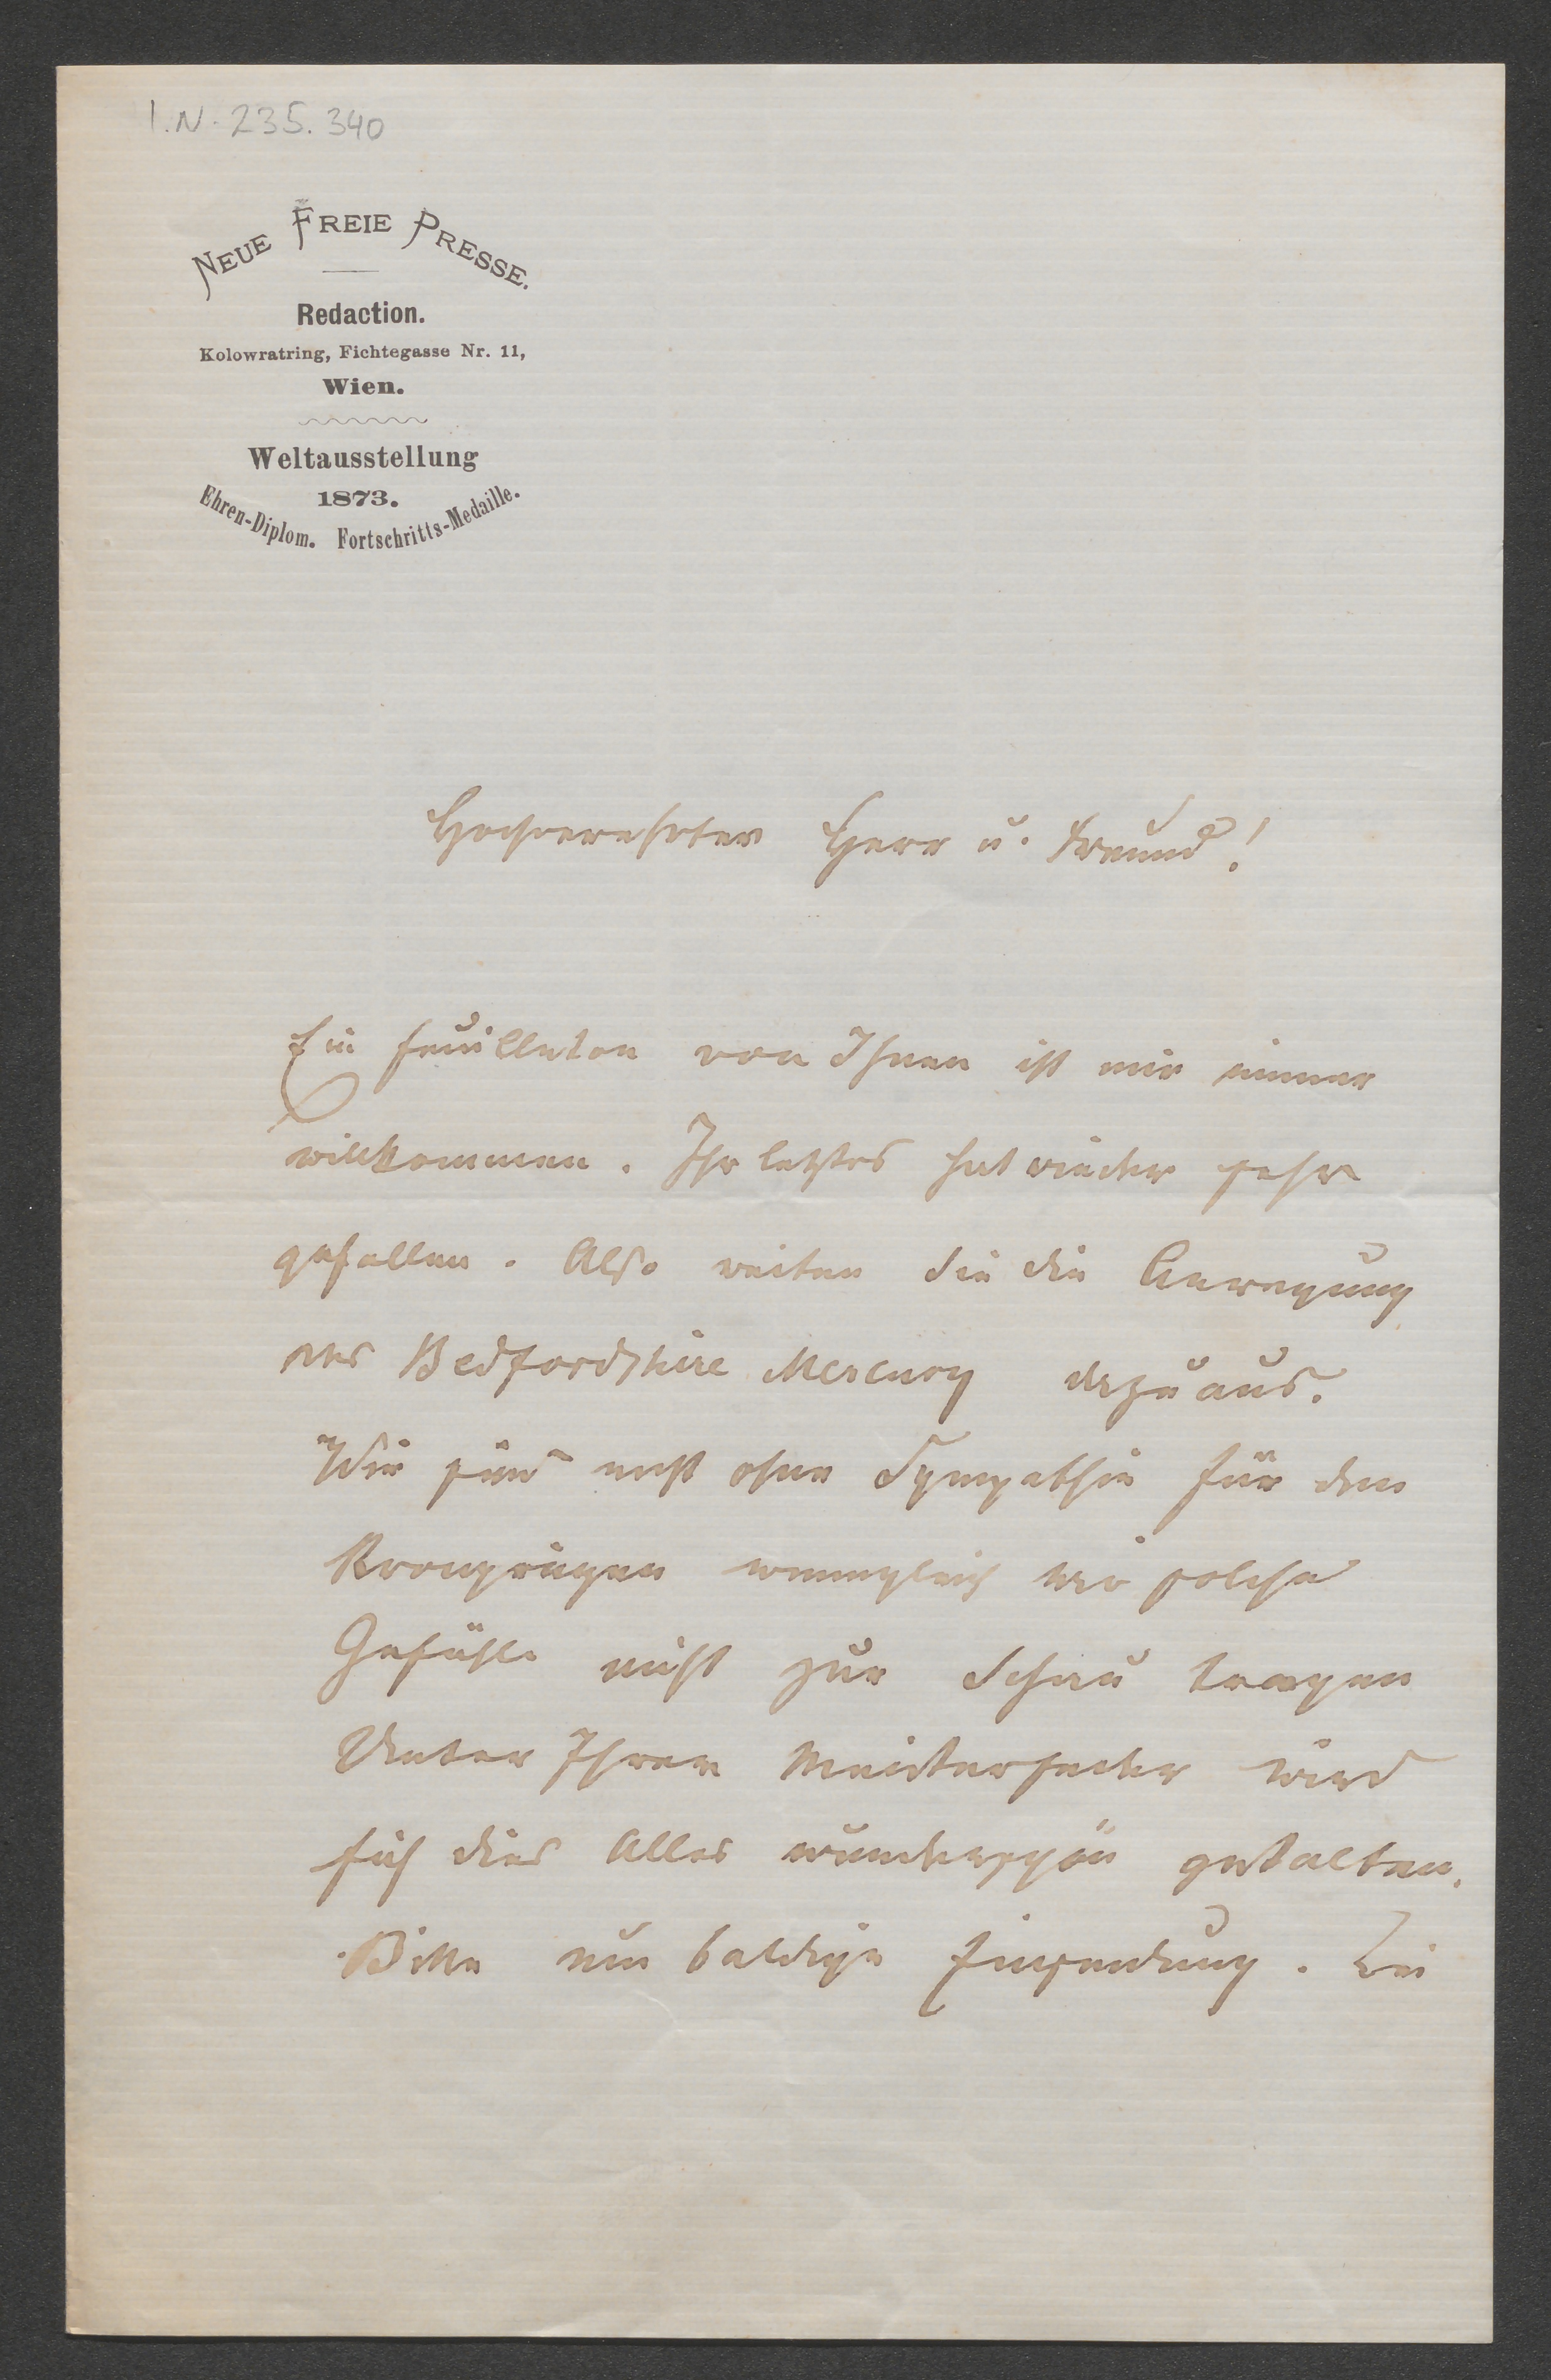 I.N. 235.340
NEUE FREIE PRESSE.
Redaction.
Kolowratring, Fichtegasse Nr. 11,
Wien.
Weltausstellung
1873.
Ehren-Diplom. Fortschritts-Medaille.
Hochverehrter Herr u. Freund!
Ein Feuilleton von Ihnen ist mir immer
willkommen. Ihr letztes hat wieder sehr
gefallen. Also weiten Sie die Anregung
des Bedfordshire Mercury dazu aus.
Wir sind nicht ohne Sympathie für den
Kronprinzen wenngleich wir solche
Gefühle nicht zur Schau tragen
Unter Ihrer Meisterfeder wird
sich dies Alles wunderschön gestalten.
Bitte um baldige Einsendung. Bei